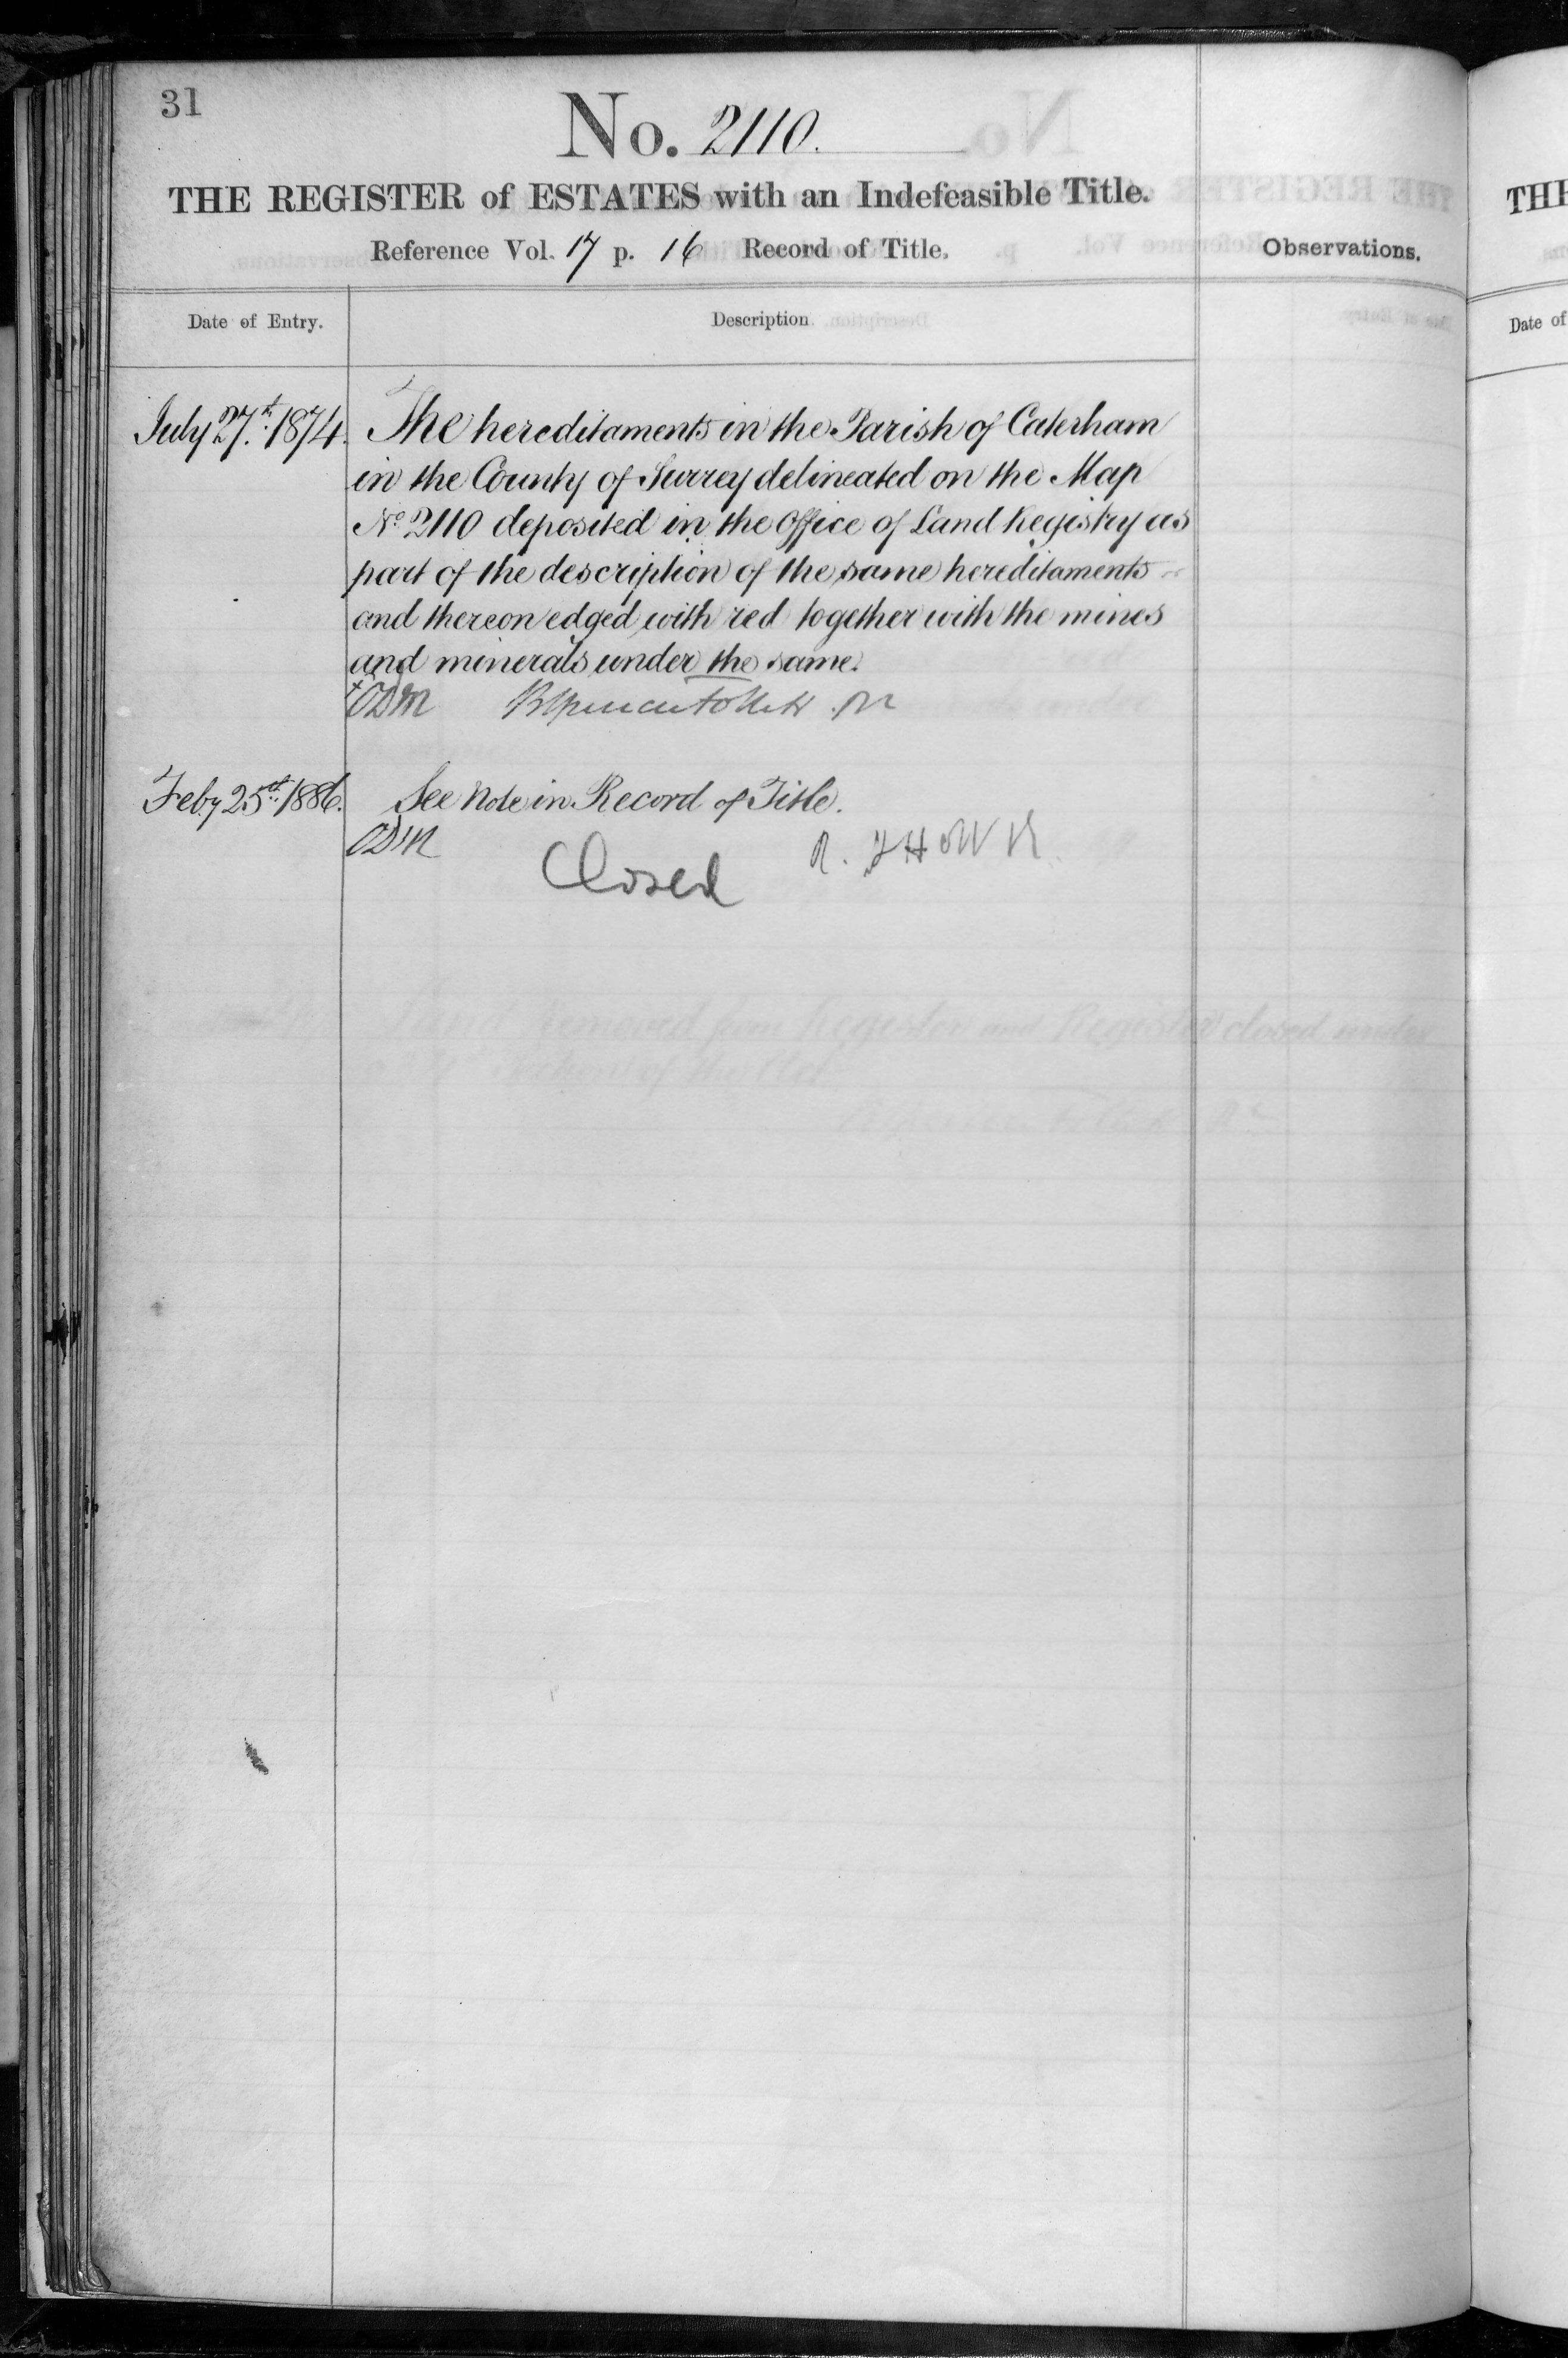 31
No. 2110.
THE REGISTER of ESTATES with an Indefeasible Title.
Reference Vol. 17 p. 16 Record of Title.
Observations.
Date of Entry.
Description.
July 27th 1874. The hereditaments in the Parish of Caterham
in the County of Surrey delineated on the Map
No 2110 deposited in the Office of Land Registry as
part of the description of the same hereditaments
and thereon edged with red together with the mines
and minerals under the same.
ODM
Feby 25th 1886. See Note in Record of Title.
ODM
Closed
Date of